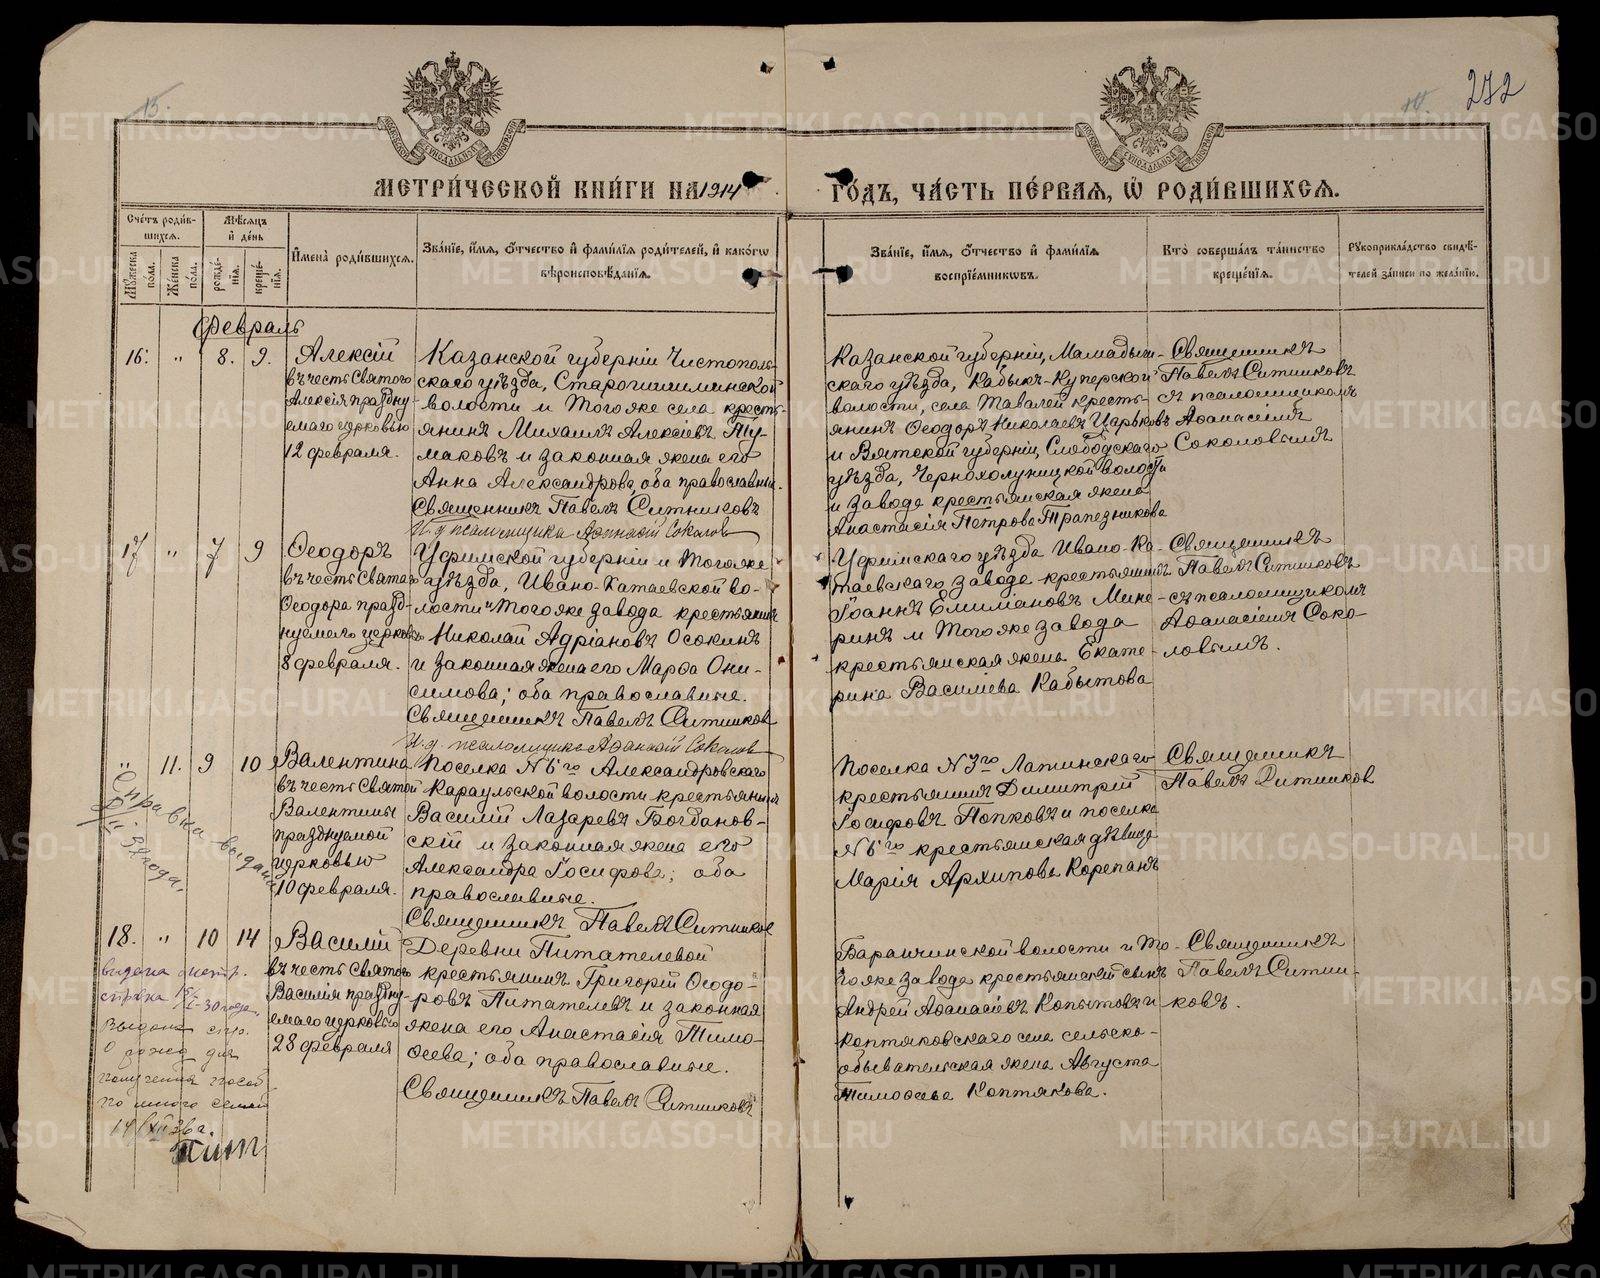 13.
272
МЕТРИ́ЧЕСКОЙ КНИ́ГИ НА 1914
ГО́ДЪ, ЧА́СТЬ ПЕ́РВАЯ, Ѡ҆ РОДИ́ВШИХСѦ.
Сче́тъ роди́в-
шихсѧ.
Мѣ́сѧцъ
и҆ де́нь
Мꙋ́жеска
по́ла.
Же́нска
по́ла.
рожде́-
нїѧ.
креще́-
нїѧ.
И҆мена̀ роди́вшихсѧ.
Зва́нїе, и҆́мѧ, ѻ҆́тчество и҆ фами́лїѧ роди́телей, и҆ како́гѡ
вѣроисповѣ́данїѧ.
Зва́нїе, и҆́мѧ, ѻ҆́тчество и҆ фами́лїѧ
воспрїе́мникѡвъ.
Кто̀ соверша́лъ та́инство
креще́нїѧ.
Рꙋкоприкла́дство свидѣ́-
телей за́писи по жела́нїю.
Февраль
16. " 8. 9.
Алексій
въ честь Святого
Алексія праздну
емаго церковью
12 февраля.
Казанской губерніи Чистополь-
скаго уѣзда, Старошешминской
волости и того же села кресть-
янинъ Михаилъ Алексіевъ Ту-
маковъ и законная жена его
Анна Александрова, оба православные.
Священникъ Павелъ Ситниковъ
И. д. псаломщика Афанасій Соколов
Казанской губерніи, Мамадыш-
скаго уѣзда, Кабыкъ-Куперской
волости, села Тавалей кресть-
янинъ Ѳеодоръ Николаевъ Царьковъ
и Вятской губерніи, Слободского
уѣзда, Чернохолуницкой волости
и завода крестьянская жена
Анастасія Петрова Трапезникова
Священникъ
Павелъ Ситниковъ
съ псаломщикомъ
Аѳанасіемъ
Соколовымъ
17 " 7 9
Ѳеодоръ
въ честь Святаго
Ѳеодора празд-
нуемаго церковью
8 февраля.
Уфимской губерніи и того же
уѣзда, Ивано-Катаевской во-
лости и того же завода крестьянинъ
Николай Адріановъ Осокинъ
и законная жена его Марѳа Они-
симова; оба православные.
Священникъ Павелъ Ситников
И. д. псаломщика Афанасій Соколов
Уфимскаго уѣзда Ивано-Ка-
таевскаго завода крестьянинъ
Іоаннъ Емиліановъ Мине-
ринъ и того же завода
крестьянская жена Екате-
рина Василіева Кабытова
Священникъ
Павелъ Ситниковъ
съ псаломщикомъ
Аѳанасіемъ Соко-
ловымъ.
" 11. 9 10
Валентина
въ честь Святой
Валентины
празднуемой
церковью
10 февраля.
Поселка N 6го Александровскаго
Караульской волости крестьянинъ
Василій Лазаревъ Богданов-
скій и законная жена его
Александра Іосифова; оба
православные.
Священникъ Павелъ Ситников
Поселка N 3го Латинскаго
крестьянинъ Димитрій
Іосифовъ Попковъ и поселка
N 6го крестьянская дѣвица
Марія Архипова Корепанъ
Священникъ
Павелъ Ситников
Справка выдана
18. " 10 14
Василій
въ честь Святого
Василія праздну
емаго церковью
28 февраля
Деревни Питателевой
крестьянинъ Григорій Ѳеодо-
ровъ Питателевъ и законная
жена его Анастасія Тимо-
ѳеева; оба православные.
Священникъ Павелъ Ситниковъ
Баранчинской волости и то-
го же завода крестьянскій сынъ
Андрей Аѳанасіевъ Копытовъ и
Коптяковскаго села сельско-
обывательская жена Августа
Тимоѳеева Коптякова.
Священникъ
Павелъ Ситни-
ковъ.
выдана метр.
справка
Выдана спр.
о рожд для
получения пособ
по много семей
14/XII 36 г.